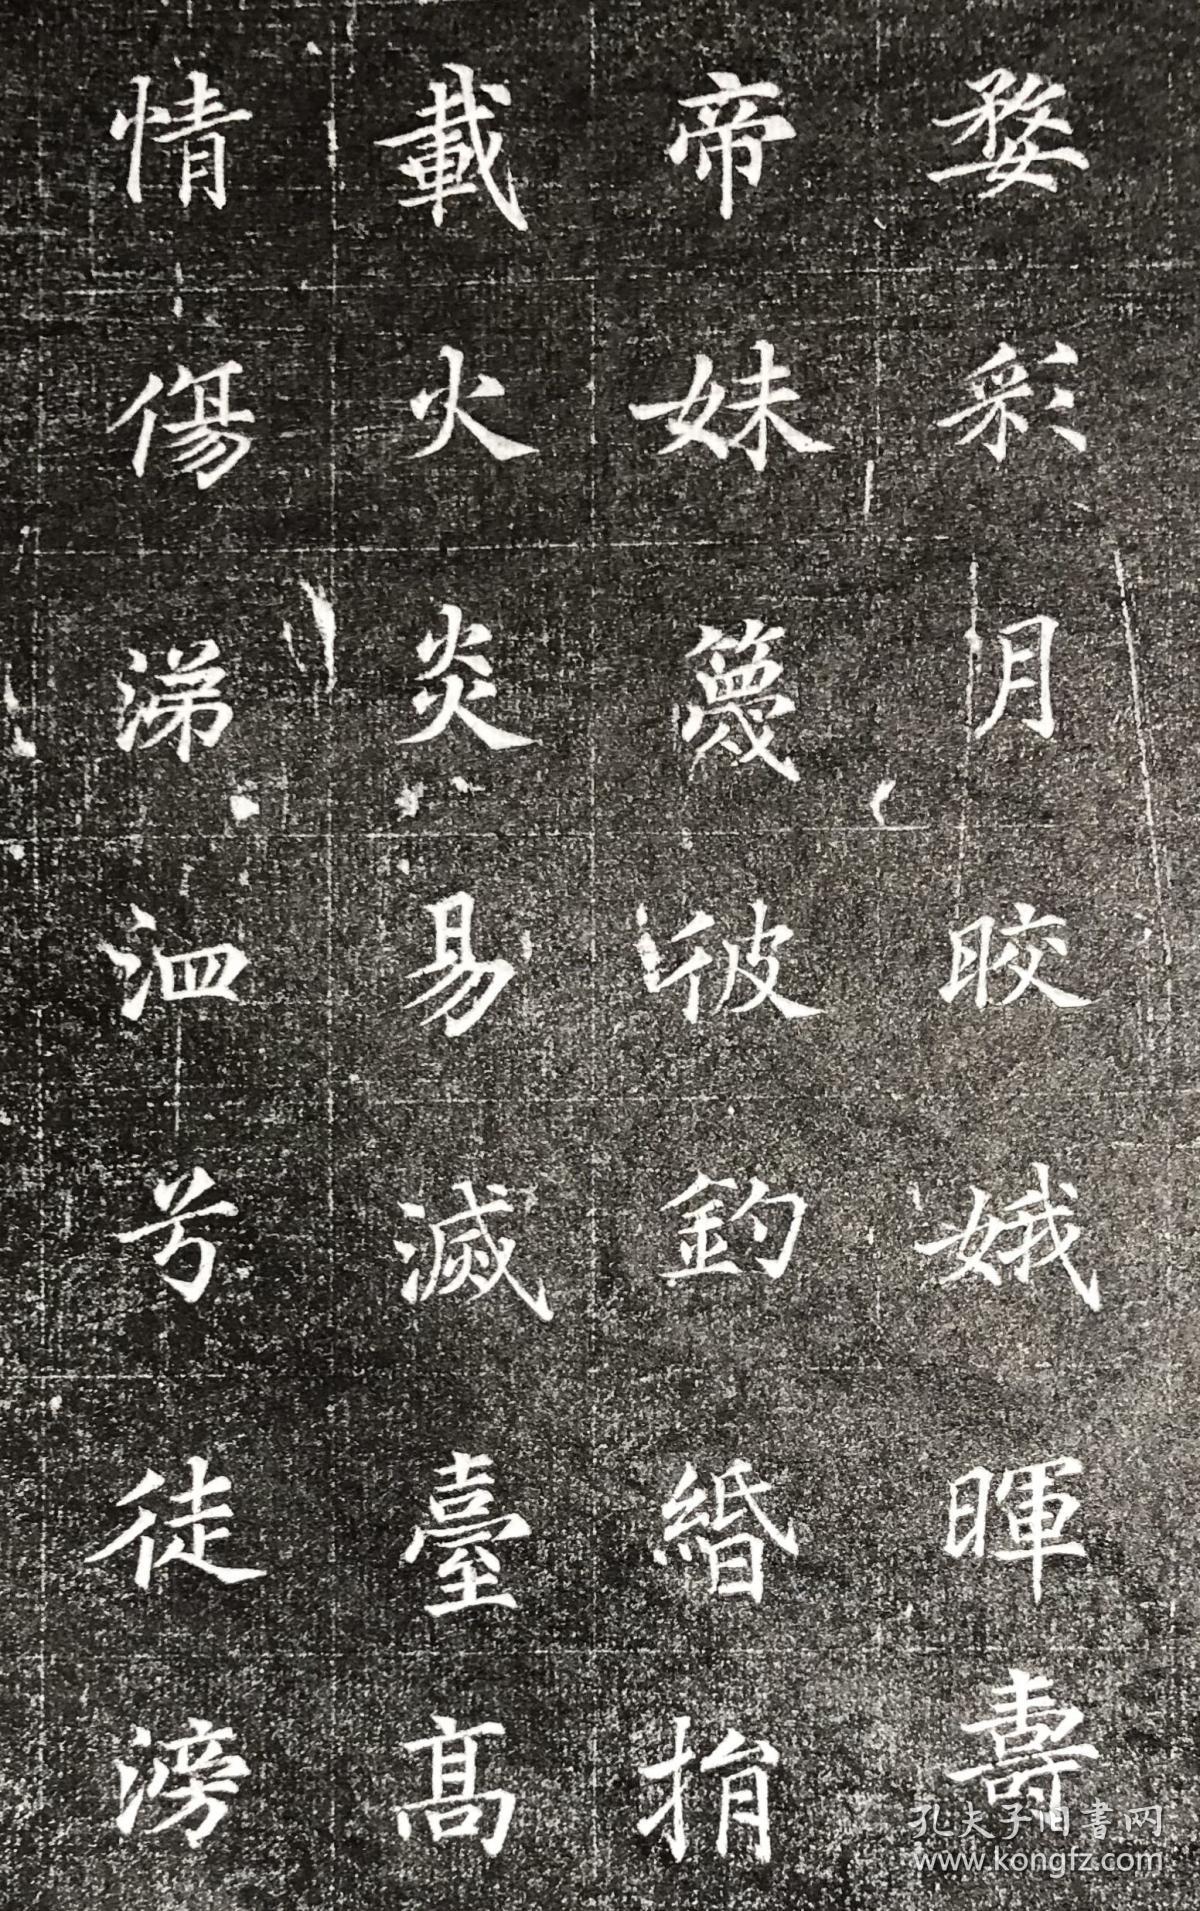 婺彩月晈娥暉壽
帝妹篾彼釣緍捐
載火炎易滅臺高
情傷涕泗兮徒滂
孔夫子旧書网
www.kongfz.com